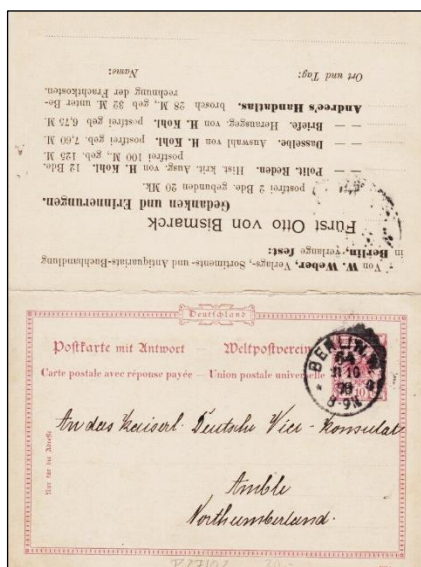 Von W. Weber, Verlags-, Sortiments- und Antiquariats-Buchhandlung
in Berlin, verlange fest:
Fürst Otto von Bismarck
Gedanken und Erinnerungen.
postfrei 2 Bde. gebunden 20 Mk.
— — Polit. Reden. Hist. krit. Ausg. von H. Kohl. 12 Bde.
postfrei 100 M., geb. 125 M.
— — Dasselbe. Auswahl von H. Kohl. postfrei geb. 7,60 M.
— — Briefe. Herausgeg. von H. Kohl. postfrei geb 6,75 M.
Andree's Handatlas. brosch 28 M., geb 32 M. unter Be-
rechnung der Frachtkosten.
Ort und Tag: Name:
Deutschland
Postkarte mit Antwort Weltpostverein
Carte postale avec réponse payée — Union postale universelle
BERLIN, N.
10
98
8-9N
Nur für die Adresse
An das Kaiserl. Deutsche Vice-Konsulat
Amble
Northumberland.